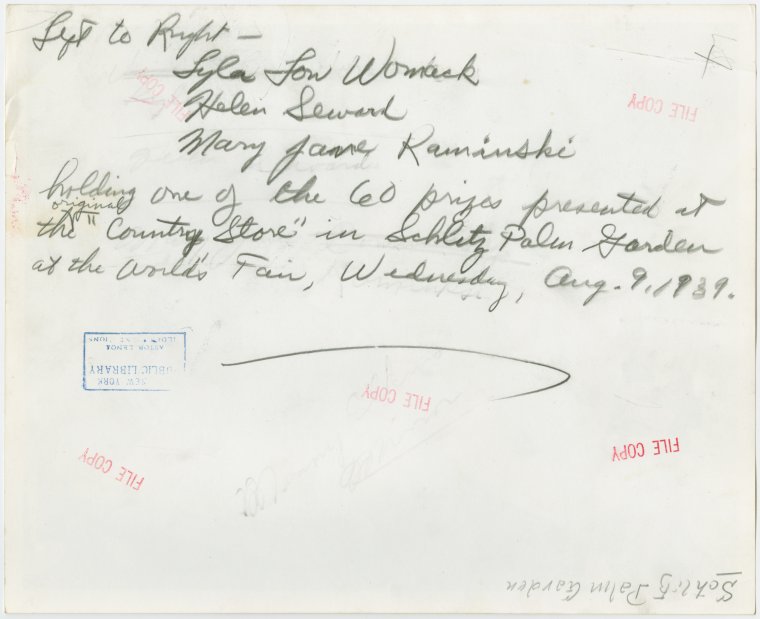 Left to Right —
Lyla Lou Womack
Helen Seward
Mary Jane Kaminski
holding one of the 60 prizes presented at
original
the "Country Store" in Schlitz Palm Garden
at the World's Fair, Wednesday, Aug. 9, 1939.
FILE COPY
FILE COPY
NEW YORK
PUBLIC LIBRARY
ASTOR LENOX
TILDEN FOUNDATIONS
FILE COPY
FILE COPY
FILE COPY
Schlitz Palm Garden